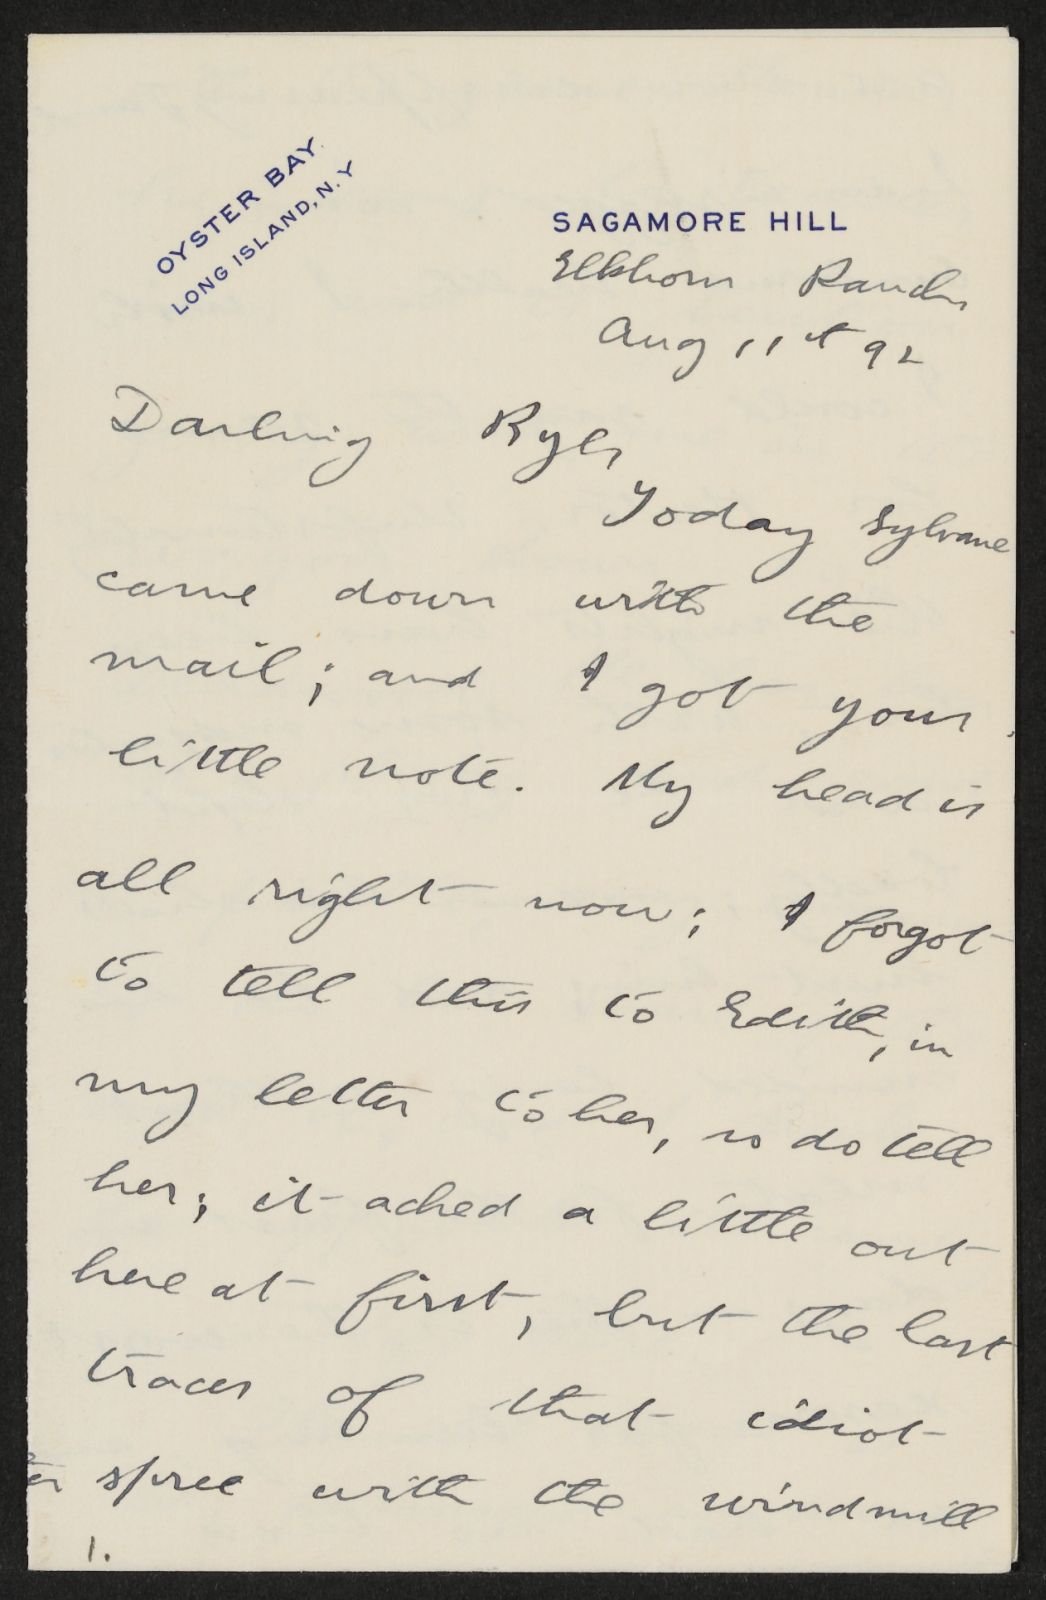 OYSTER BAY
LONG ISLAND, N.Y
SAGAMORE HILL
Elkhorn Ranch
Aug 11th 92
Darling Bye,
Today Sylvane
came down with the
mail; and I got your
little note. My head is
all right now; I forgot
to tell this to Edith, in
my letter to her, so do tell
her; it ached a little out
here at first, but the last
traces of that idiot
spree with the windmill
1.